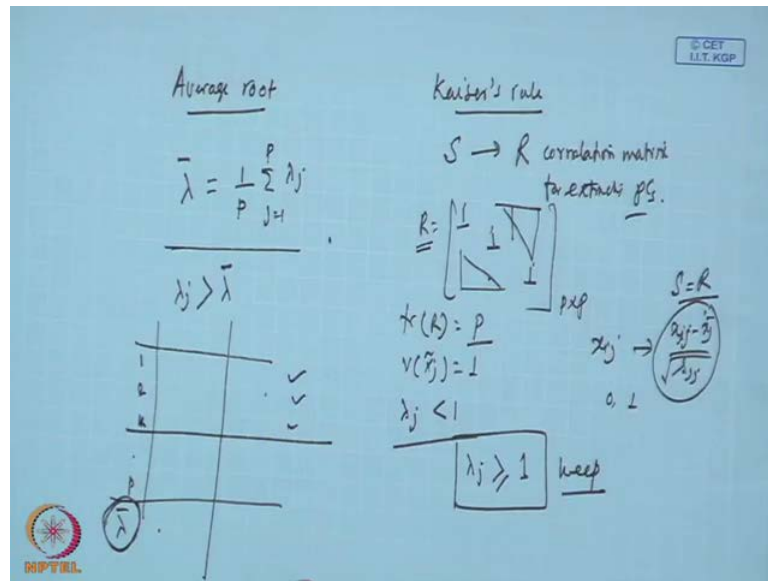 © CET
I.I.T. KGP
Average root
λ̄ = 1/p Σ_{j=1}^{p} λj
λj > λ̄
1 ✓
2 ✓
k ✓
.
p
λ̄
Kaiser's rule
S → R correlation matrix
for extracting PCs.
R = [1 1 1] pxp
tr(R) = p
v(x̃j) = 1
λj < 1
λj ≥ 1 keep
S = R
xij → (xij - x̄j) / √
0, 1
NPTEL